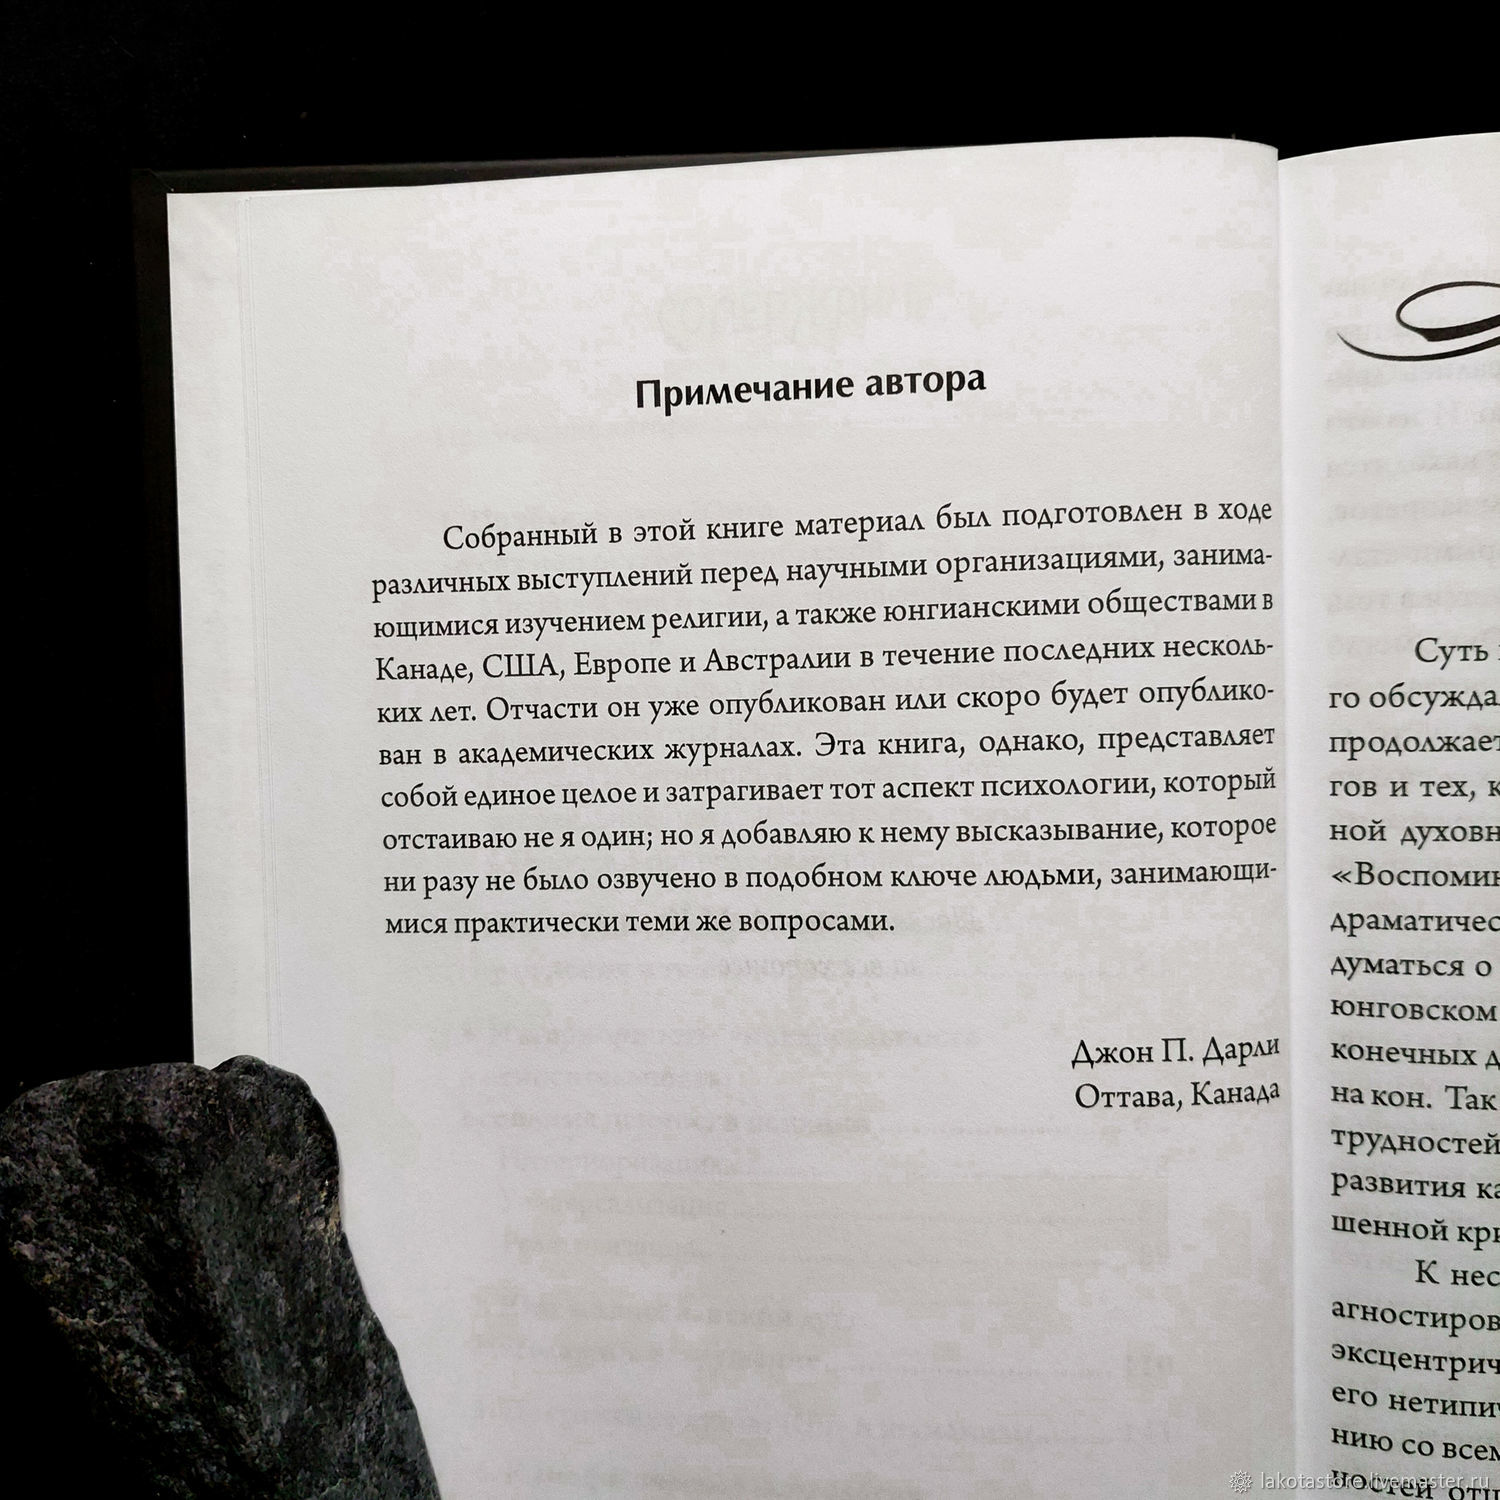 Примечание автора
Собранный в этой книге материал был подготовлен в ходе
различных выступлений перед научными организациями, занима-
ющимися изучением религии, а также юнгианскими обществами в
Канаде, США, Европе и Австралии в течение последних несколь-
ких лет. Отчасти он уже опубликован или скоро будет опублико-
ван в академических журналах. Эта книга, однако, представляет
собой единое целое и затрагивает тот аспект психологии, который
отстаиваю не я один; но я добавляю к нему высказывание, которое
ни разу не было озвучено в подобном ключе людьми, занимающи-
мися практически теми же вопросами.
Джон П. Дарли
Оттава, Канада
Суть
го обсужда
продолжает
гов и тех, к
ной духовн
«Воспомин
драматичес
думаться о
юнговском
конечных д
на кон. Так
трудностей
развития ка
шенной кри
К нес
агностиров
эксцентрич
его нетипич
нию со всем
ностей отц
lakotastore.livemaster.ru